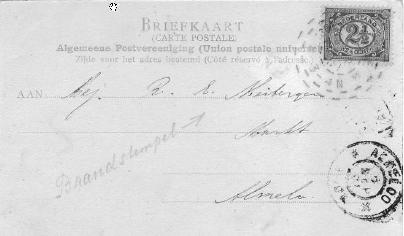 BRIEFKAART
(CARTE POSTALE)
Algemeene Postvereeniging (Union postale universelle)
Zijde voor het adres bestemd (Côté réservé à l'adresse)
NEDERLAND
2½
AAN
Mej.
Markt
Almelo
Brandstempel
ALMELOO